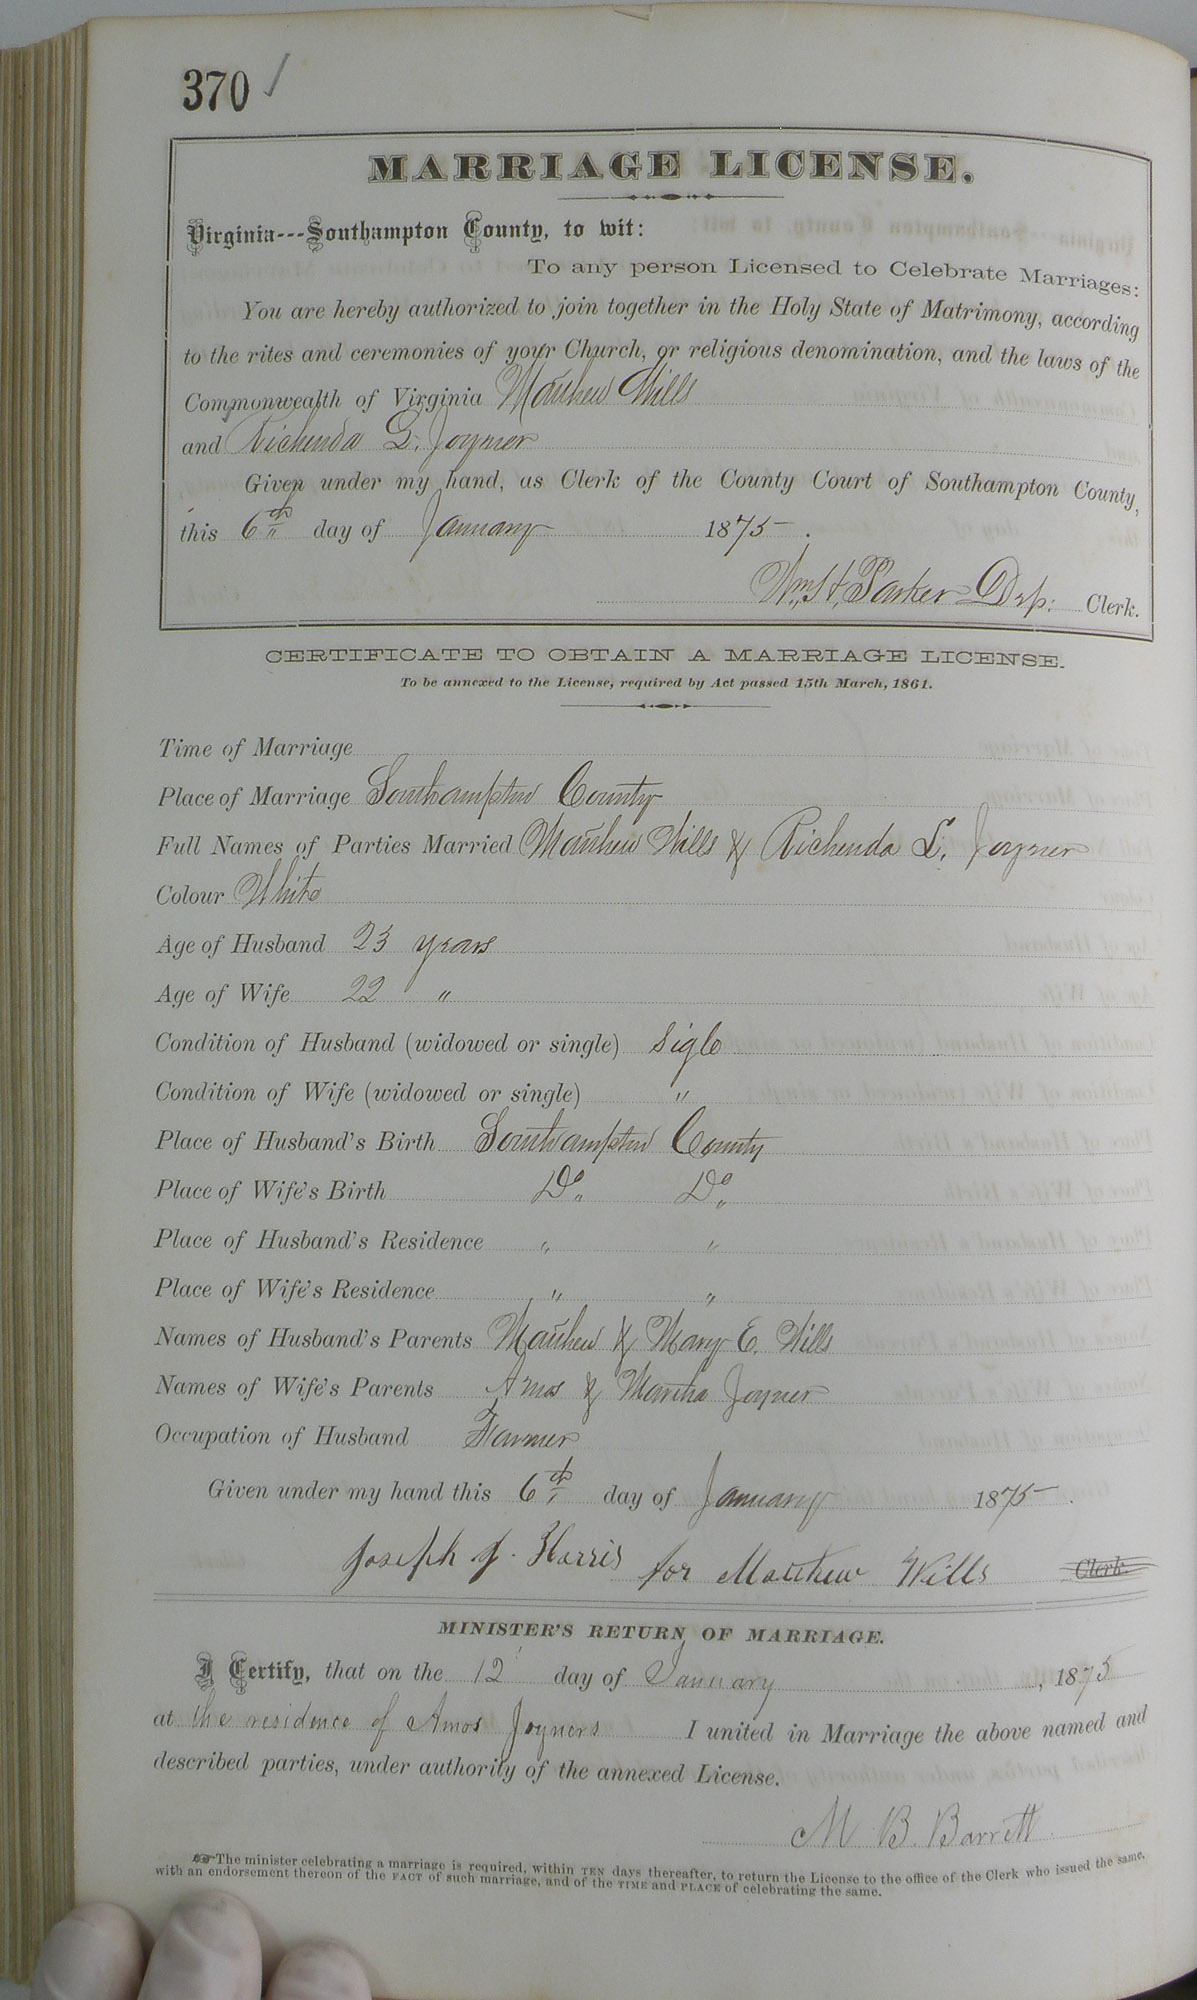 370 /
MARRIAGE LICENSE.
Virginia---Southampton County, to wit:
To any person Licensed to Celebrate Marriages:
You are hereby authorized to join together in the Holy State of Matrimony, according
to the rites and ceremonies of your Church, or religious denomination, and the laws of the
Commonwealth of Virginia Matthew Wills
and Richenda L. Joyner
Given under my hand, as Clerk of the County Court of Southampton County,
this 6th day of January 1875.
Wm. H. Parker Dep: Clerk.
CERTIFICATE TO OBTAIN A MARRIAGE LICENSE.
To be annexed to the License, required by Act passed 15th March, 1861.
Time of Marriage
Place of Marriage Southampton County
Full Names of Parties Married Matthew Wills & Richenda L. Joyner
Colour White
Age of Husband 23 years
Age of Wife 22 "
Condition of Husband (widowed or single) Sigle
Condition of Wife (widowed or single) "
Place of Husband's Birth Southampton County
Place of Wife's Birth Do. Do.
Place of Husband's Residence " "
Place of Wife's Residence " "
Names of Husband's Parents Matthew & Mary E. Wills
Names of Wife's Parents Amos & Martha Joyner
Occupation of Husband Farmer
Given under my hand this 6th day of January 1875.
Joseph J. Harris for Matthew Wills Clerk.
MINISTER'S RETURN OF MARRIAGE.
I Certify, that on the 12 day of January, 1875
at the residence of Amos Joyners I united in Marriage the above named and
described parties, under authority of the annexed License.
M B. Barrett
☞The minister celebrating a marriage is required, within TEN days thereafter, to return the License to the office of the Clerk who issued the same,
with an endorsement thereon of the FACT of such marriage, and of the TIME and PLACE of celebrating the same.